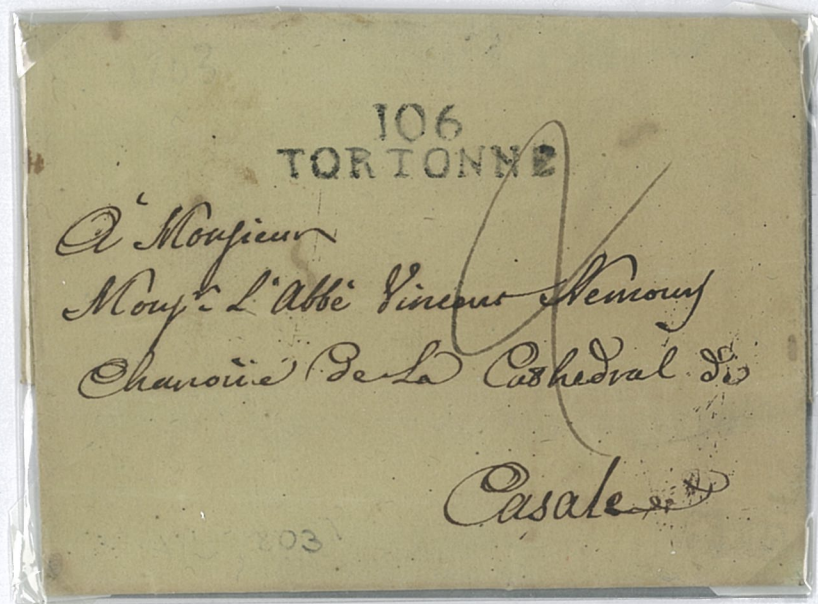 106
TORTONNE
À Monsieur
Monsr. L'Abbé Vincent Nemours
Chanoiïe De La Cathedral de
Casale
803